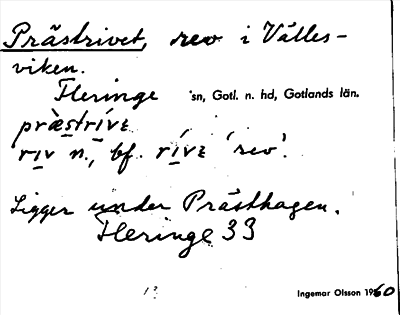 Prästrivet, rev i Välles-
viken.
Fleringe sn, Gotl. n. hd, Gotlands län.
præstríve
riv n., bf. ríve 'rev'.
Ligger under Prästhagen.
Fleringe 33
Ingemar Olsson 1960